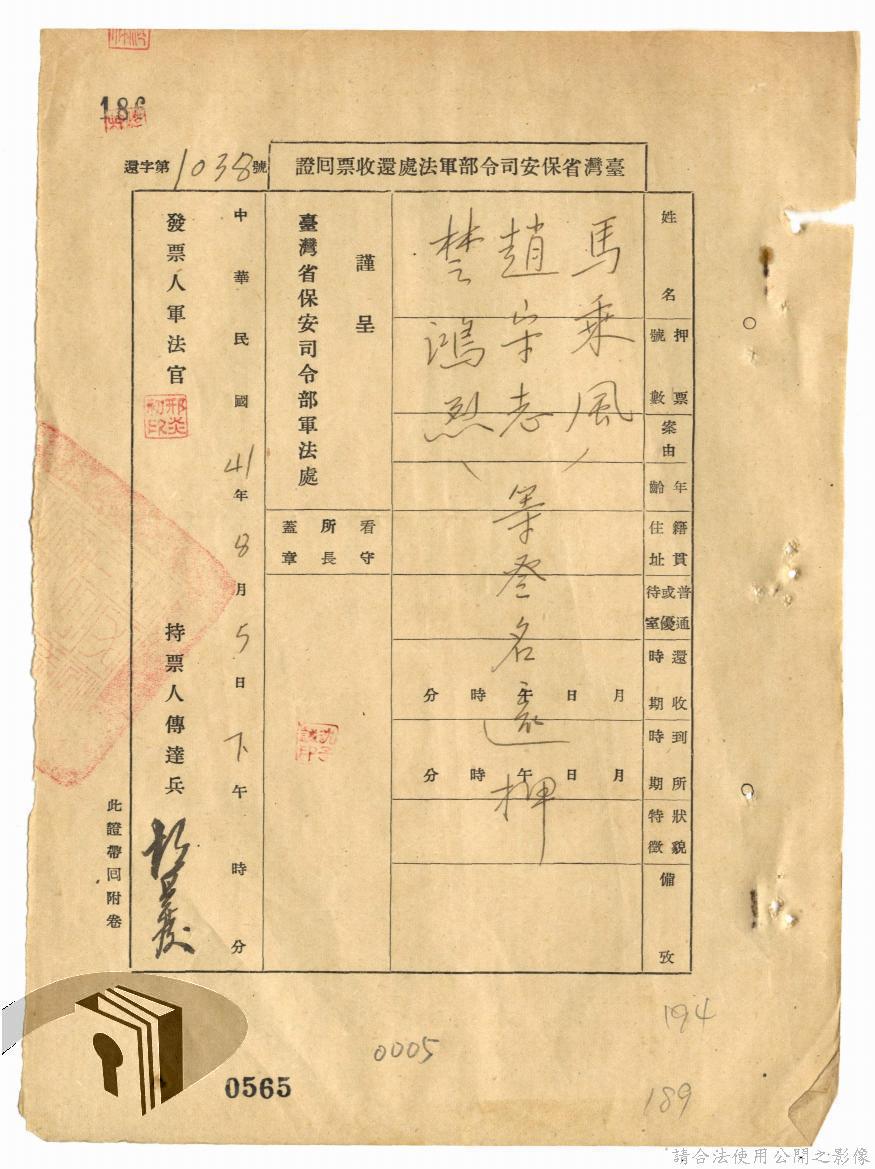 186
臺灣省保安司令部軍法處還收票回證
還字第1038號
姓名
押票號數
案由
年齡
籍貫住址
普通或優待室
還收時期
到所時期
狀貌特徵
備攷
馬乘風
趙宗志
楚鴻烈
(
)
等叄名還押
月日午時分
月日午時分
謹呈
臺灣省保安司令部軍法處
看守所長蓋章
中華民國41年8月5日下午時分
發票人軍法官
邢炎初印
持票人傳達兵
此證帶回附卷
194
0005
0565
189
請合法使用公開之影像